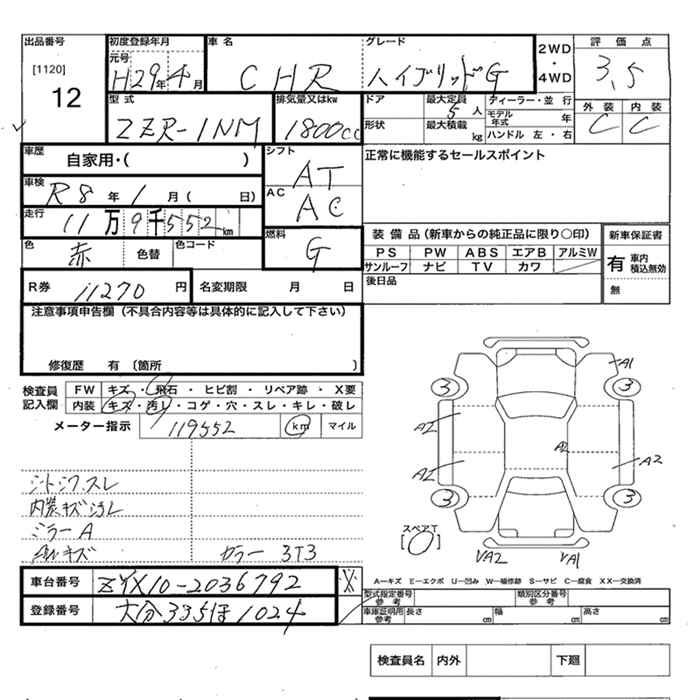 出品番号
[1120]
12
初度登録年月
元号
H29年4月
車名
CHR
グレード
ハイブリッドG
2WD
・
4WD
評価点
3,5
外装 内装
C C
型式
ZZR-1NM
排気量又はkw
1800cc
ドア
形状
最大定員
5人
最大積載
kg
ディーラー・並行
モデル年式 年
ハンドル 左・右
車歴
自家用・( )
シフト
AT
AC
AC
正常に機能するセールスポイント
車検
R8年1月( 日)
走行
11万9千552km
色
赤
色替
色コード
燃料
G
装備品(新車からの純正品に限り○印)
PS PW ABS エアB アルミW
サンルーフ ナビ TV カワ
後日品
新車保証書
有 車内積込無効
無
R券 11270円
名変期限 月 日
注意事項申告欄(不具合内容等は具体的に記入して下さい)
修復歴 有〔箇所 〕
検査員記入欄
FW キズ・飛石・ヒビ割・リペア跡・X要
内装 キズ・汚し・コゲ・穴・スレ・キレ・破レ
メーター指示 119552 km マイル
シートシワ.スレ
内装キズ汚レ
ミラーA
AWキズ カラー 3T3
A1
3 3
A2 A2
A2 A2
3 3
スペアT
[ ]
VA2 VA1
A-キズ E-エクボ U-凹み W-補修跡 S-サビ C-腐食 XX-交換済
車台番号 ZYX10-2036792
登録番号 大分335ほ1024
型式指定番号 参考
類別区分番号 参考
車庫証明用 参考 長さ cm 幅 cm 高さ cm
検査員名 内外 下廻